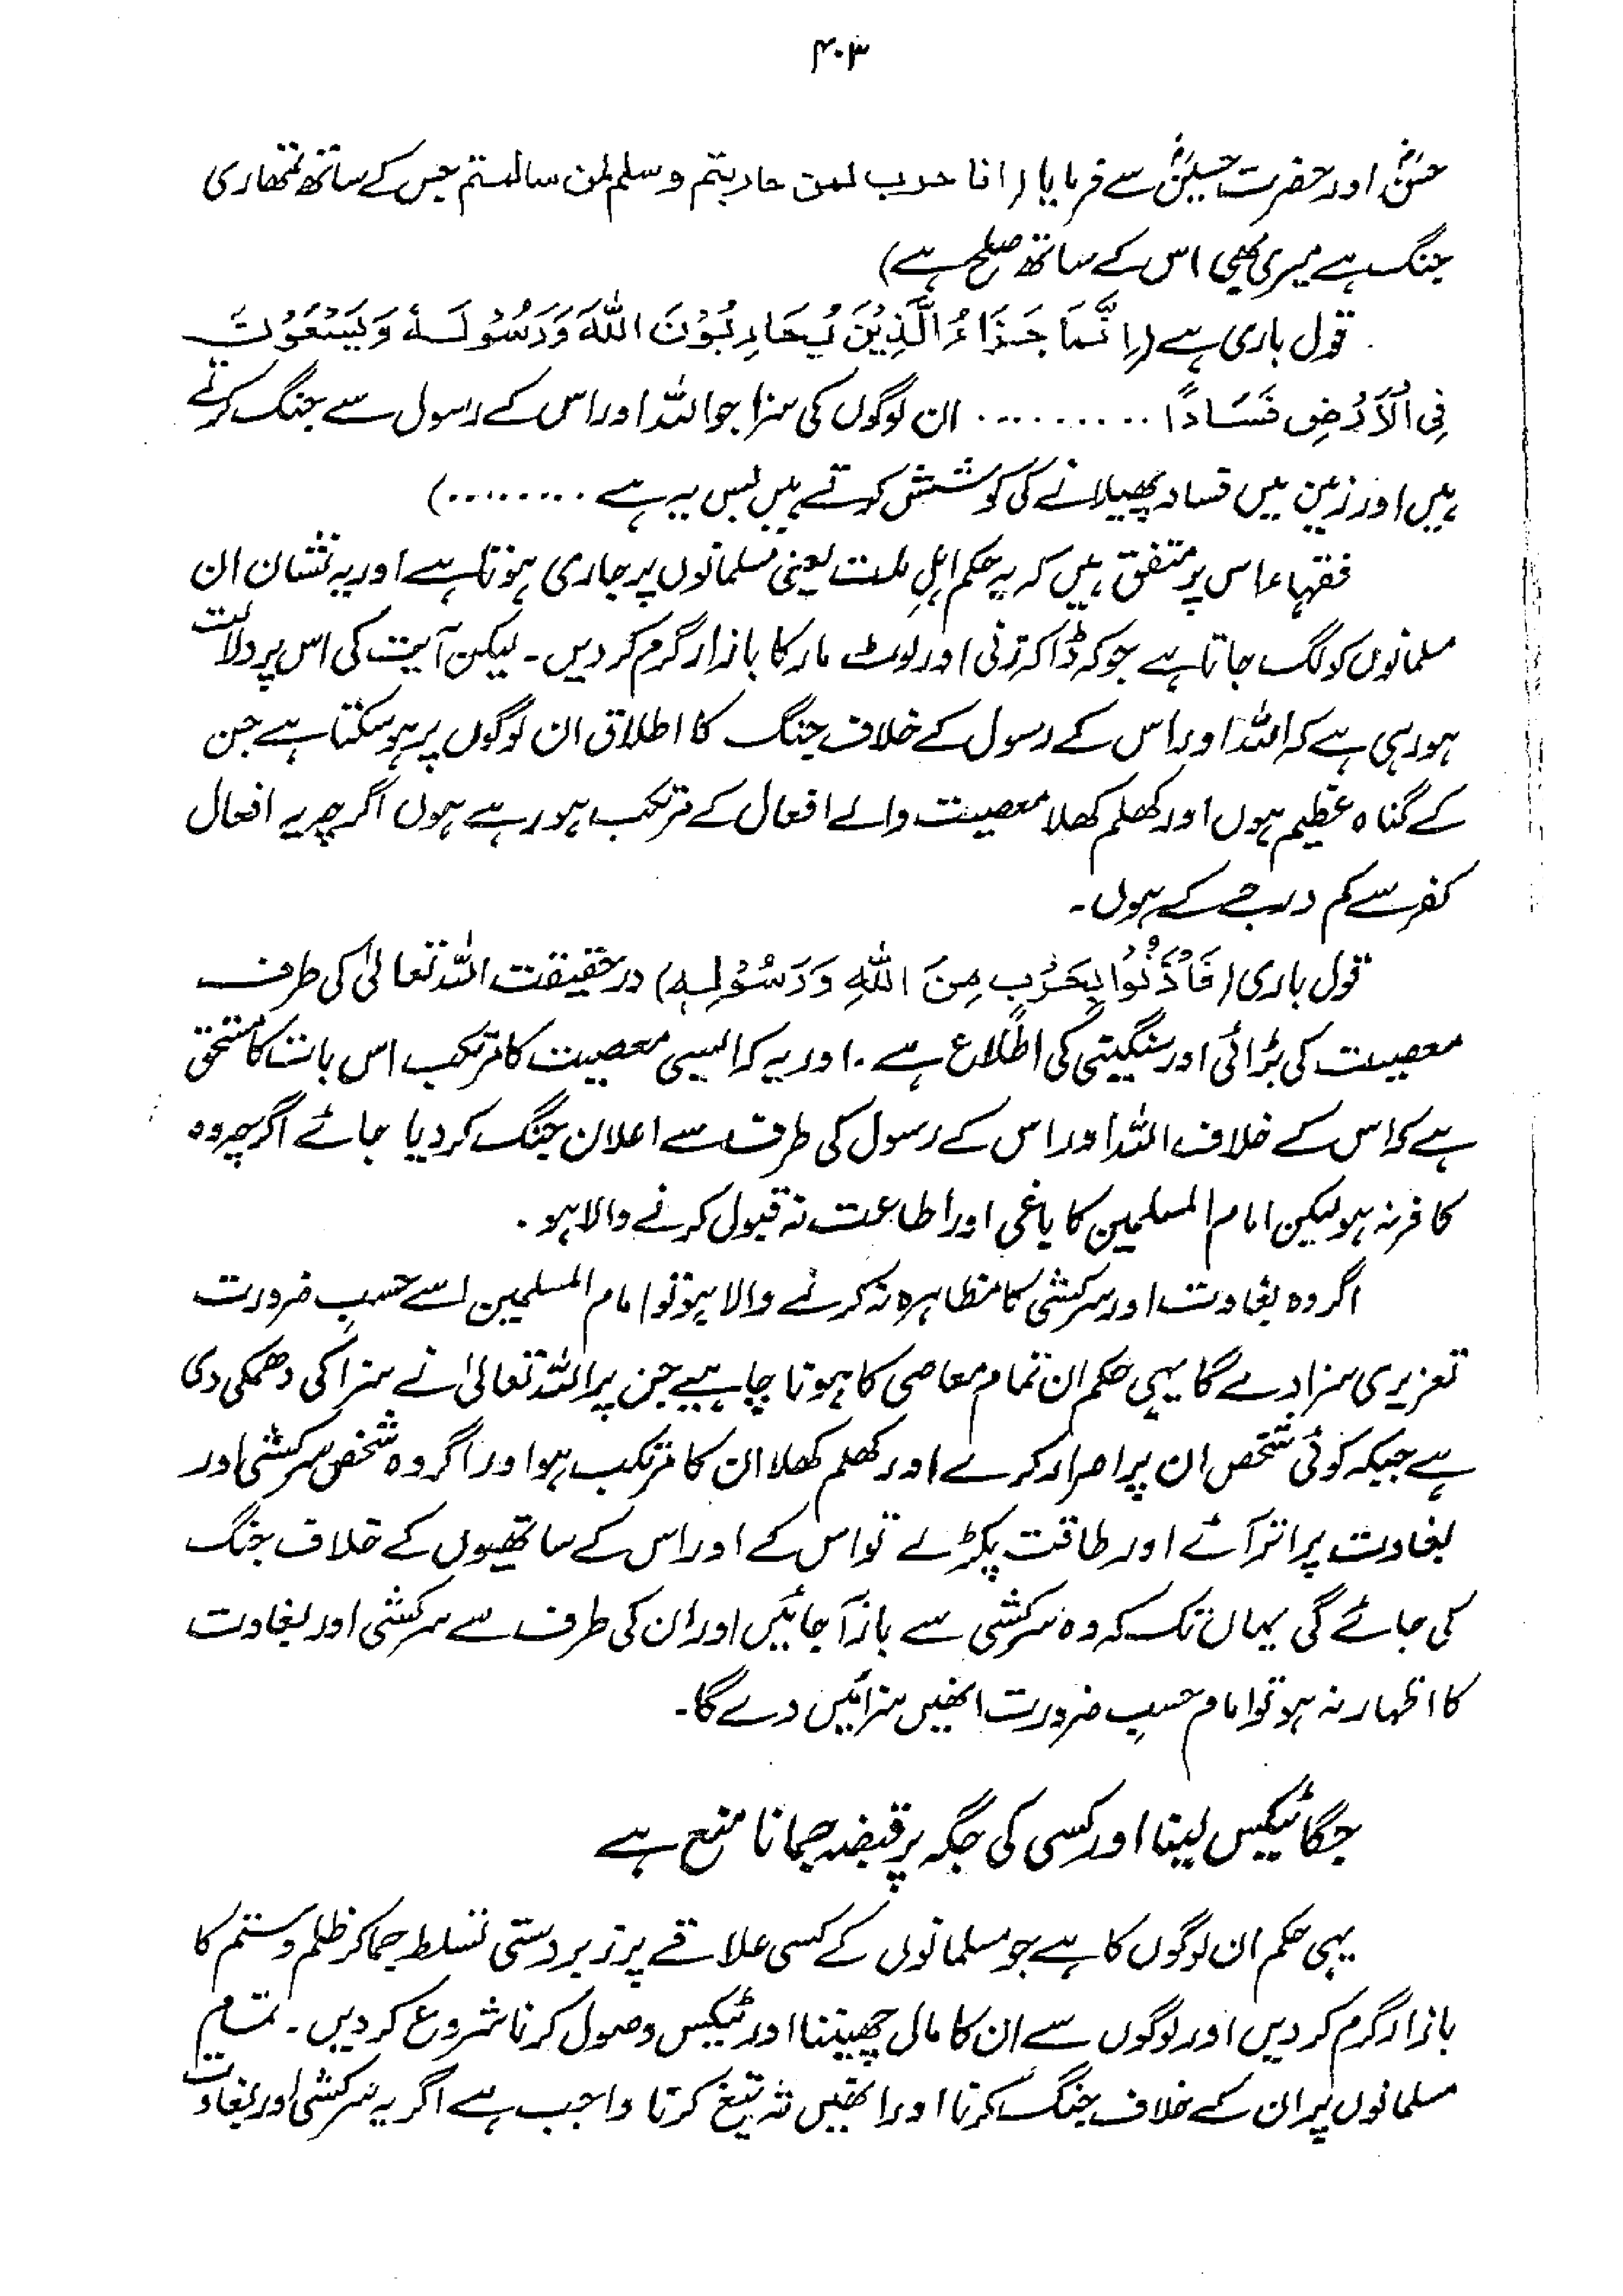 ۴۰۳
حسنؓ اور حضرت حسینؓ سے فرمایا (انا حرب لمن حاربتم وسلم لمن سالمتم جس کے ساتھ تمھاری
جنگ ہے میری بھی اس کے ساتھ صلح ہے)
قول باری ہے (اِنَّمَا جَزَاءُ الَّذِیْنَ یُحَارِبُوْنَ اللّٰہَ وَرَسُوْلَہٗ وَیَسْعَوْنَ
فِی الْاَرْضِ فَسَادًا .......... ان لوگوں کی سزا جو اللہ اور اس کے رسول سے جنگ کرتے
ہیں اور زمین میں فساد پھیلانے کی کوشش کرتے ہیں بس یہ ہے .........)
فقہاء اس پر متفق ہیں کہ یہ حکم اہلِ ملت یعنی مسلمانوں پر جاری ہوتا ہے اور یہ نشان ان
مسلمانوں کو لگ جاتا ہے جو کہ ڈاکہ زنی اور لوٹ مار کا بازار گرم کر دیں۔ لیکن آیت کی اس پر دلالت
ہو رہی ہے کہ اللہ اور اس کے رسول کے خلاف جنگ کا اطلاق ان لوگوں پر ہو سکتا ہے جن
کے گناہ عظیم ہوں اور کھلم کھلا معصیت والے افعال کے مرتکب ہو رہے ہوں اگرچہ یہ افعال
کفر سے کم درجے کے ہوں۔
قول باری (فَأْذَنُوْا بِحَرْبٍ مِنَ اللّٰہِ وَرَسُوْلِہٖ) درحقیقت اللہ تعالیٰ کی طرف
معصیت کی بڑائی اور سنگینی کی اطلاع ہے۔ اور یہ کہ ایسی معصیت کا مرتکب اس بات کا مستحق
ہے کہ اس کے خلاف اللہ اور اس کے رسول کی طرف سے اعلان جنگ کر دیا جائے اگرچہ وہ
کافر نہ ہو لیکن امام المسلمین کا باغی اور اطاعت نہ قبول کرنے والا ہو۔
اگر وہ بغاوت اور سرکشی کا مظاہرہ نہ کرنے والا ہو تو امام المسلمین اسے حسبِ ضرورت
تعزیری سزا دے گا یہی حکم ان تمام معاصی کا ہونا چاہیے جن پر اللہ تعالیٰ نے سزا کی دھمکی دی
ہے جبکہ کوئی شخص ان پر اصرار کرے اور کھلم کھلا ان کا مرتکب ہو اور اگر وہ شخص سرکشی اور
بغاوت پر اتر آئے اور طاقت پکڑ لے تو اس کے اور اس کے ساتھیوں کے خلاف جنگ
کی جائے گی یہاں تک کہ وہ سرکشی سے باز آ جائیں اور ان کی طرف سے سرکشی اور بغاوت
کا اظہار نہ ہو تو امام حسبِ ضرورت انھیں سزائیں دے گا۔
جگا ٹیکس لینا اور کسی کی جگہ پر قبضہ جمانا منع ہے
یہی حکم ان لوگوں کا ہے جو مسلمانوں کے کسی علاقے پر زبردستی تسلط جما کر ظلم و ستم کا
بازار گرم کر دیں اور لوگوں سے ان کا مال چھیننا اور ٹیکس وصول کرنا شروع کر دیں۔ تمام
مسلمانوں پر ان کے خلاف جنگ کرنا اور انھیں تہ تیغ کرنا واجب ہے اگر یہ سرکشی اور بغاوت